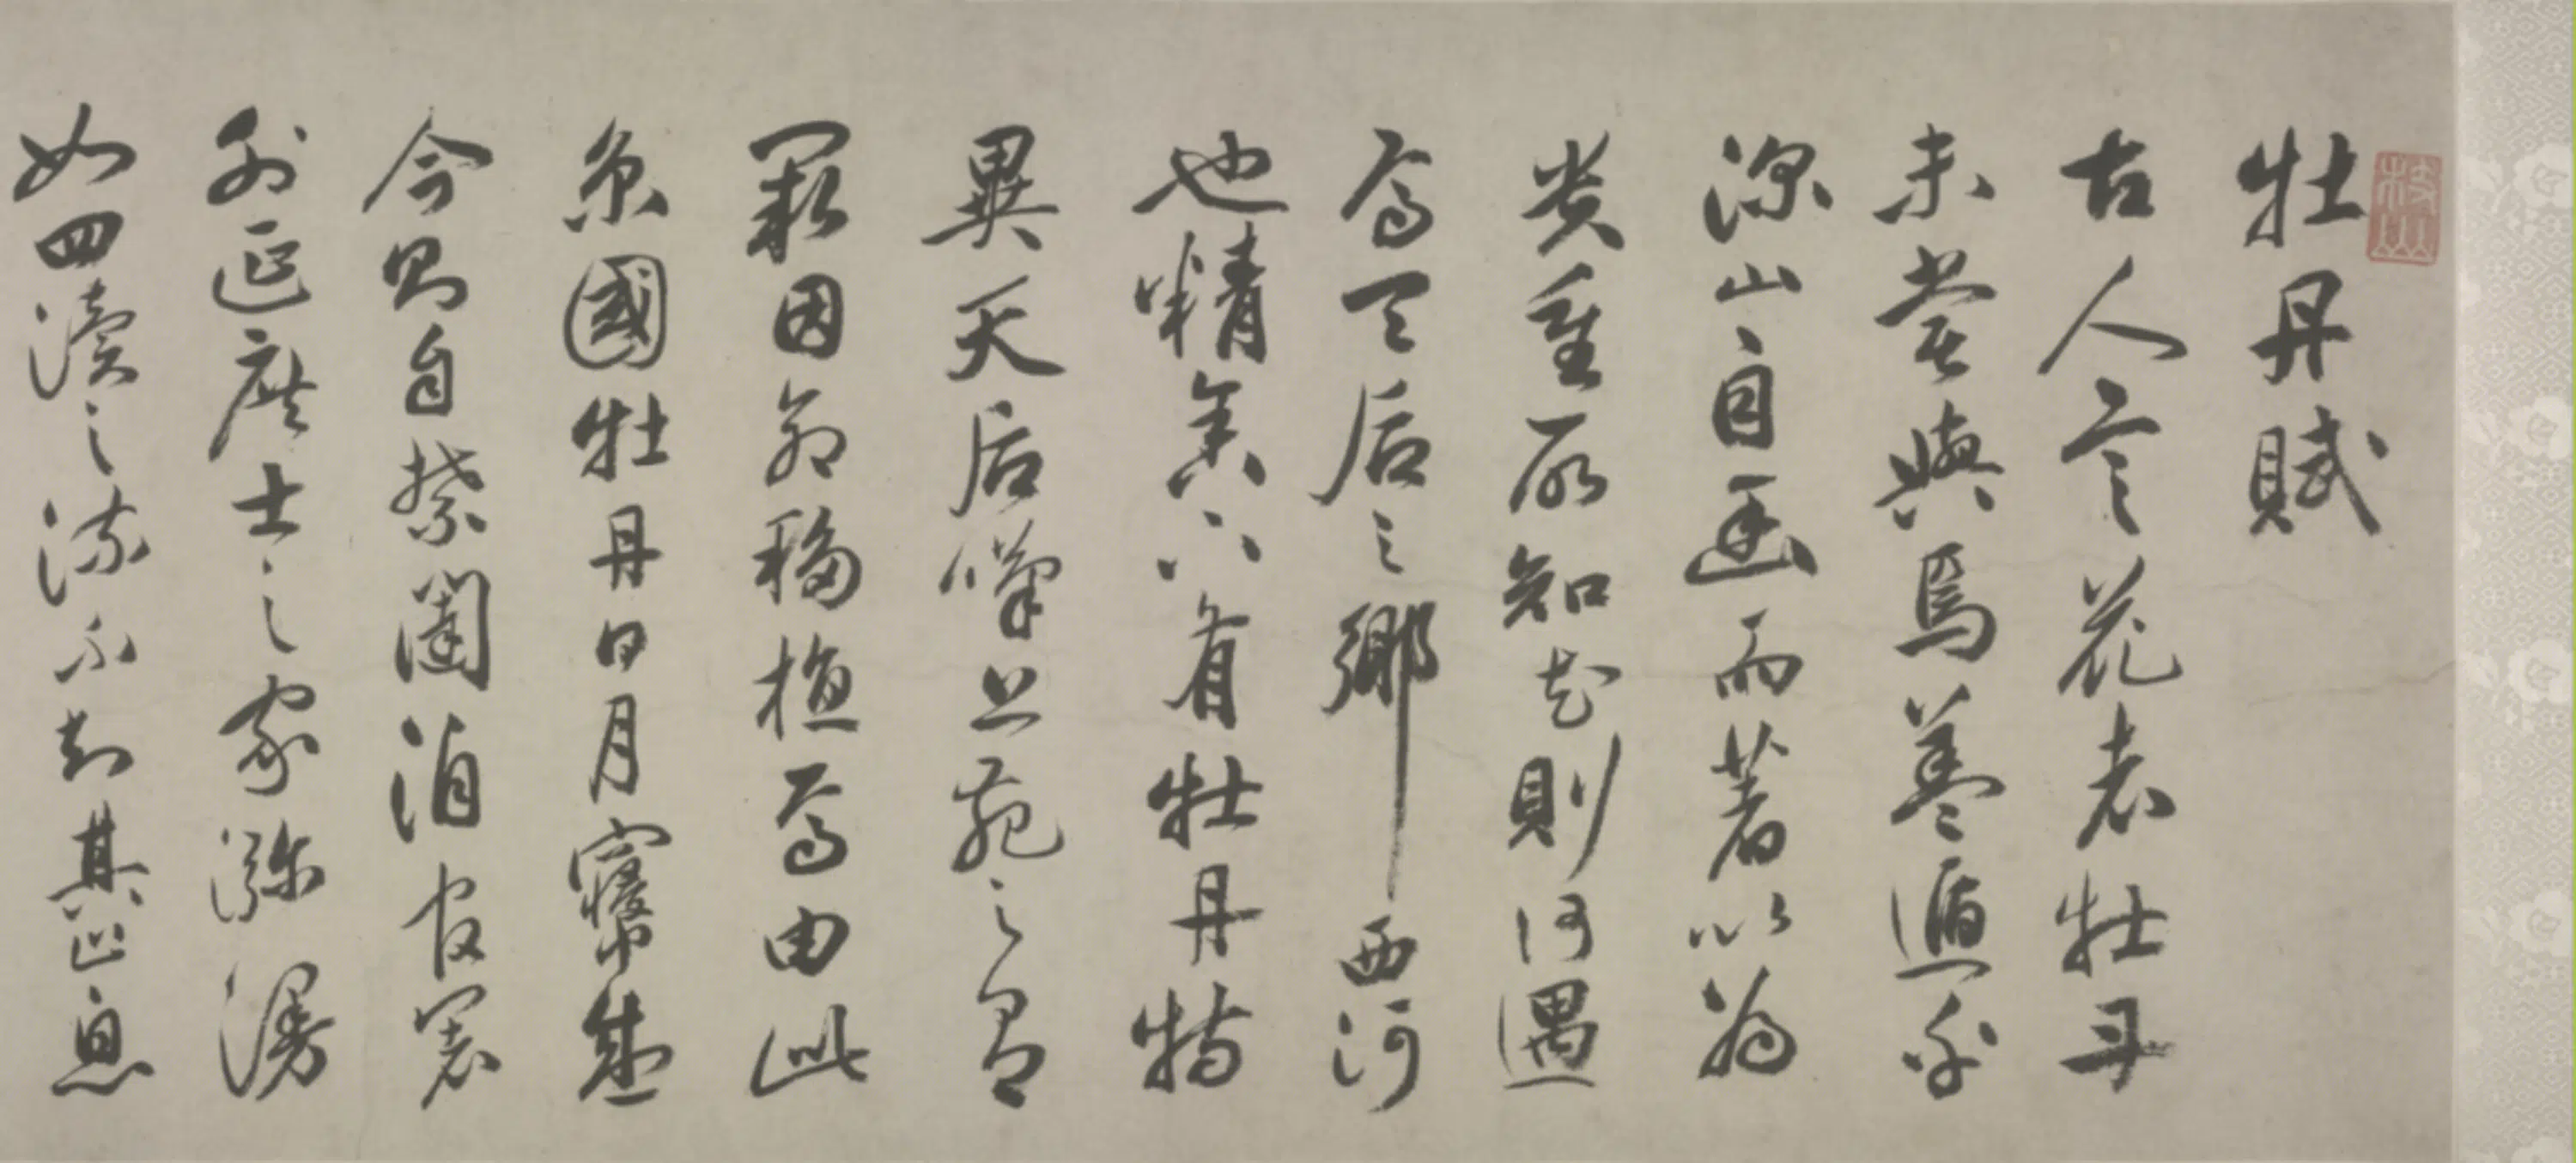 枝山
牡丹賦
古人言花者牡丹
未嘗與焉蓋遁乎
深山自幽而著以為
貴重所知花則何遇
焉天后之鄉西河
也精舍下有牡丹特
異天后嘆上苑之有
闕因命移植焉由此
京國牡丹日月寖盛
今則自禁闥洎官署
外延庶士之家瀰漫
如四瀆之流不知其止息